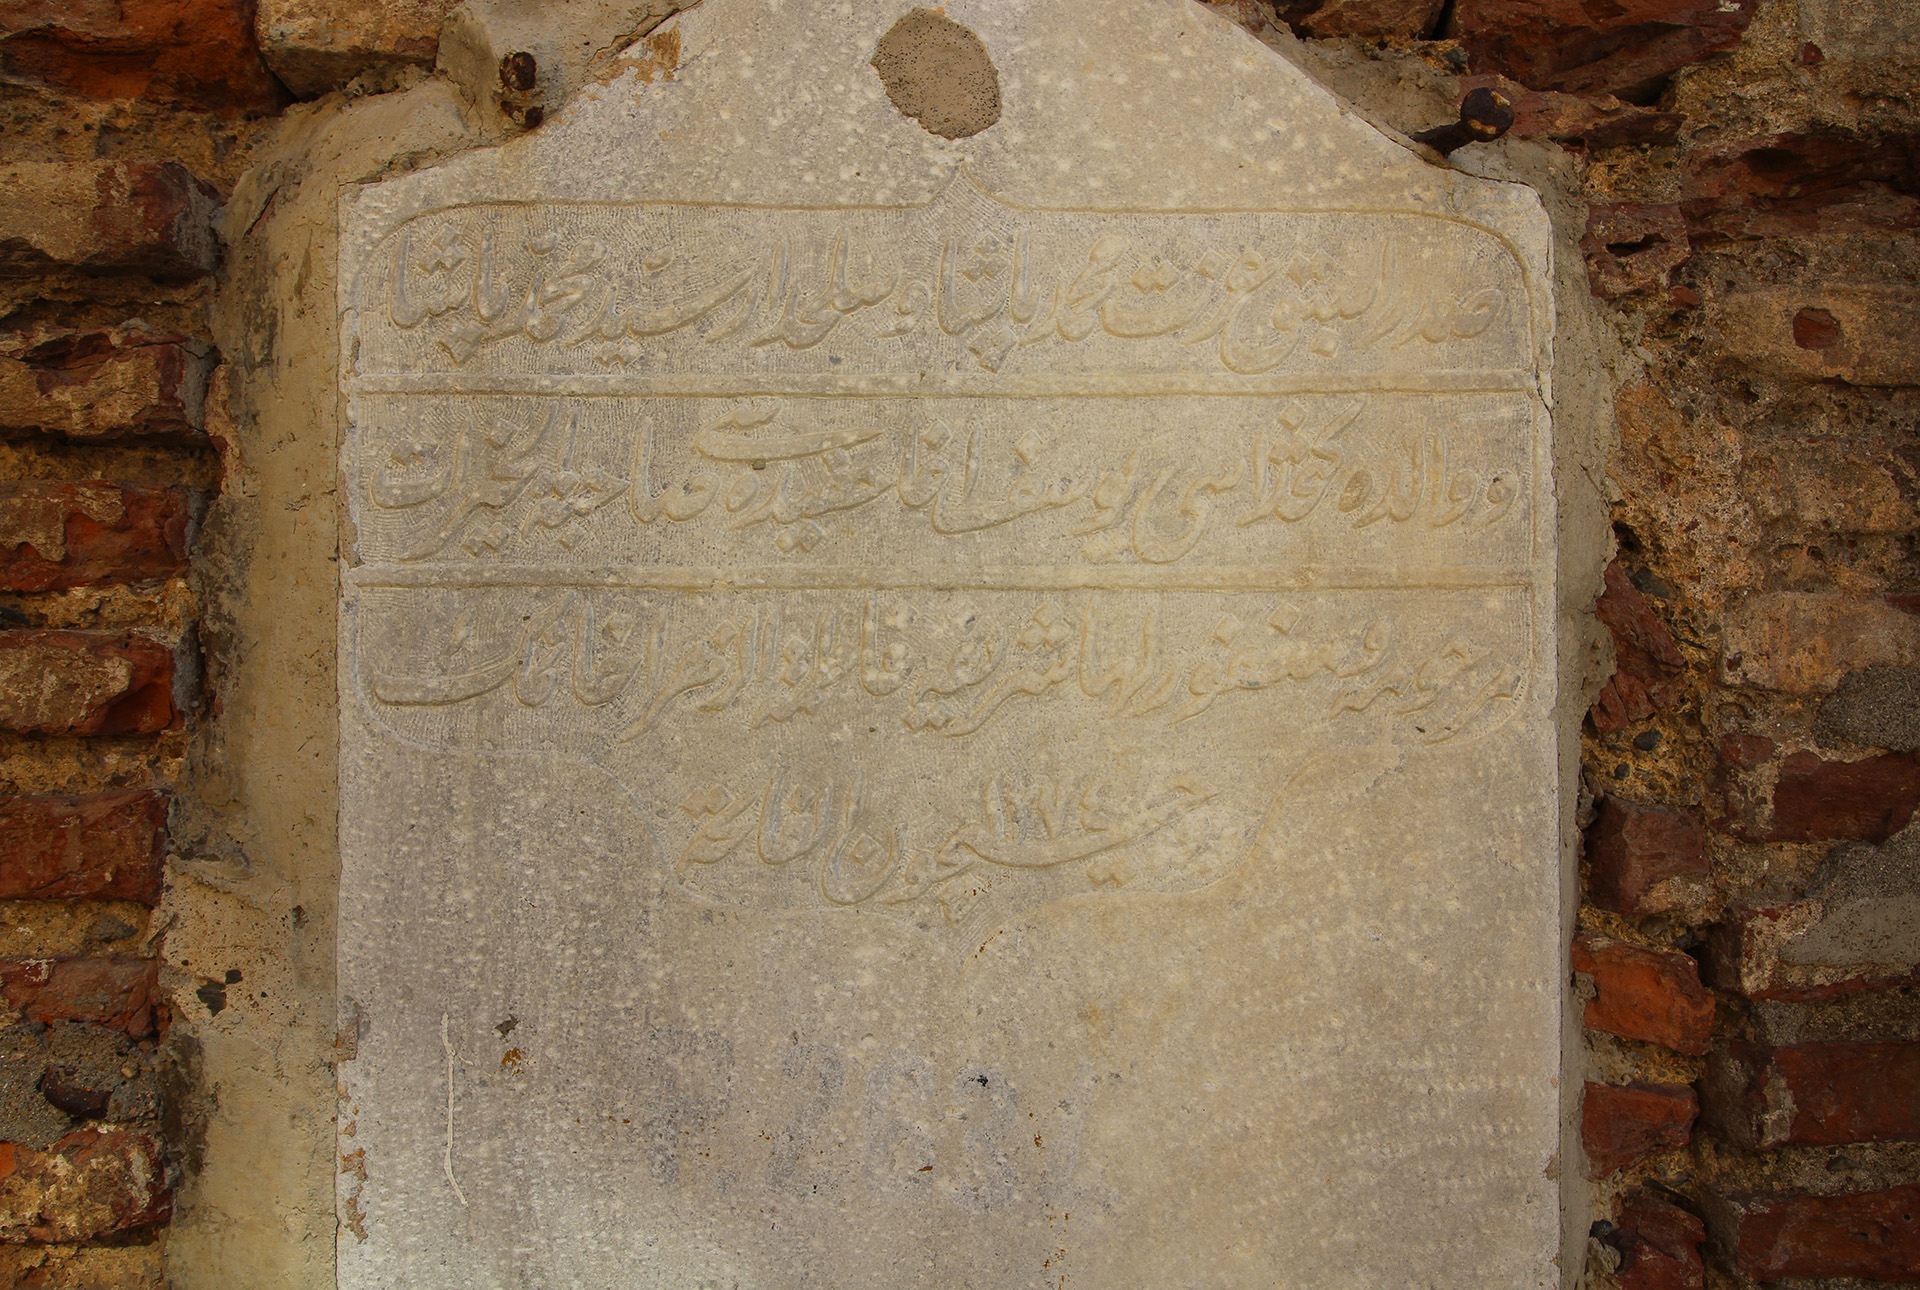 صدر اسبق عزت محمد پاشا و سلحدار سید محمد پاشا
و والده كتخداسی یوسف اغانك سیده‌سی صاحبة الخیرات
مرحومه و مغفور لها شریفه فاطمه زهرا خانمك
روحیچون الفاتحه